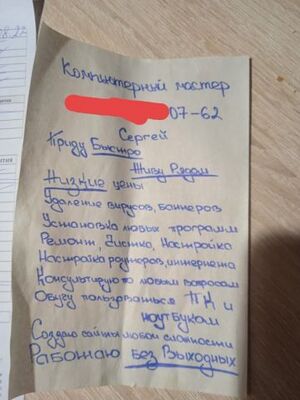 Компютерный мастер
07-62
Сергей
Приду Быстро
Живу Рядом
Низкие цены
Удаление вирусов, баннеров
Установка любых программ
Ремонт, Чистка, Настройка
Настройка роутеров, интернета
Консультирую по любым вопросам
Обучу пользоваться ПК и
ноутбуком
Создаю сайты любой сложности
Работаю Без Выходных